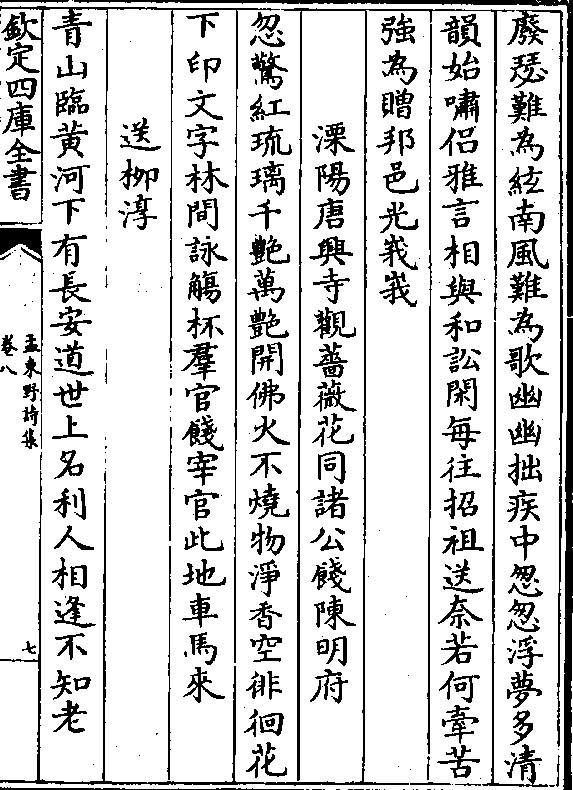 廢瑟難為絃南風難為歌幽幽拙疾中忽忽浮夢多清
韻始嘯侶雅言相與和訟閑每往招祖送奈若何牽苦
強為贈邦邑光峩峩
溧陽唐興寺觀薔薇花同諸公餞陳明府
忽驚紅琉璃千艷萬艷開佛火不燒物淨香空徘徊花
下印文字林間詠觴杯羣官餞宰官此地車馬來
送柳淳
青山臨黃河下有長安道世上名利人相逢不知老
欽定四庫全書
孟東野詩集
卷八
七